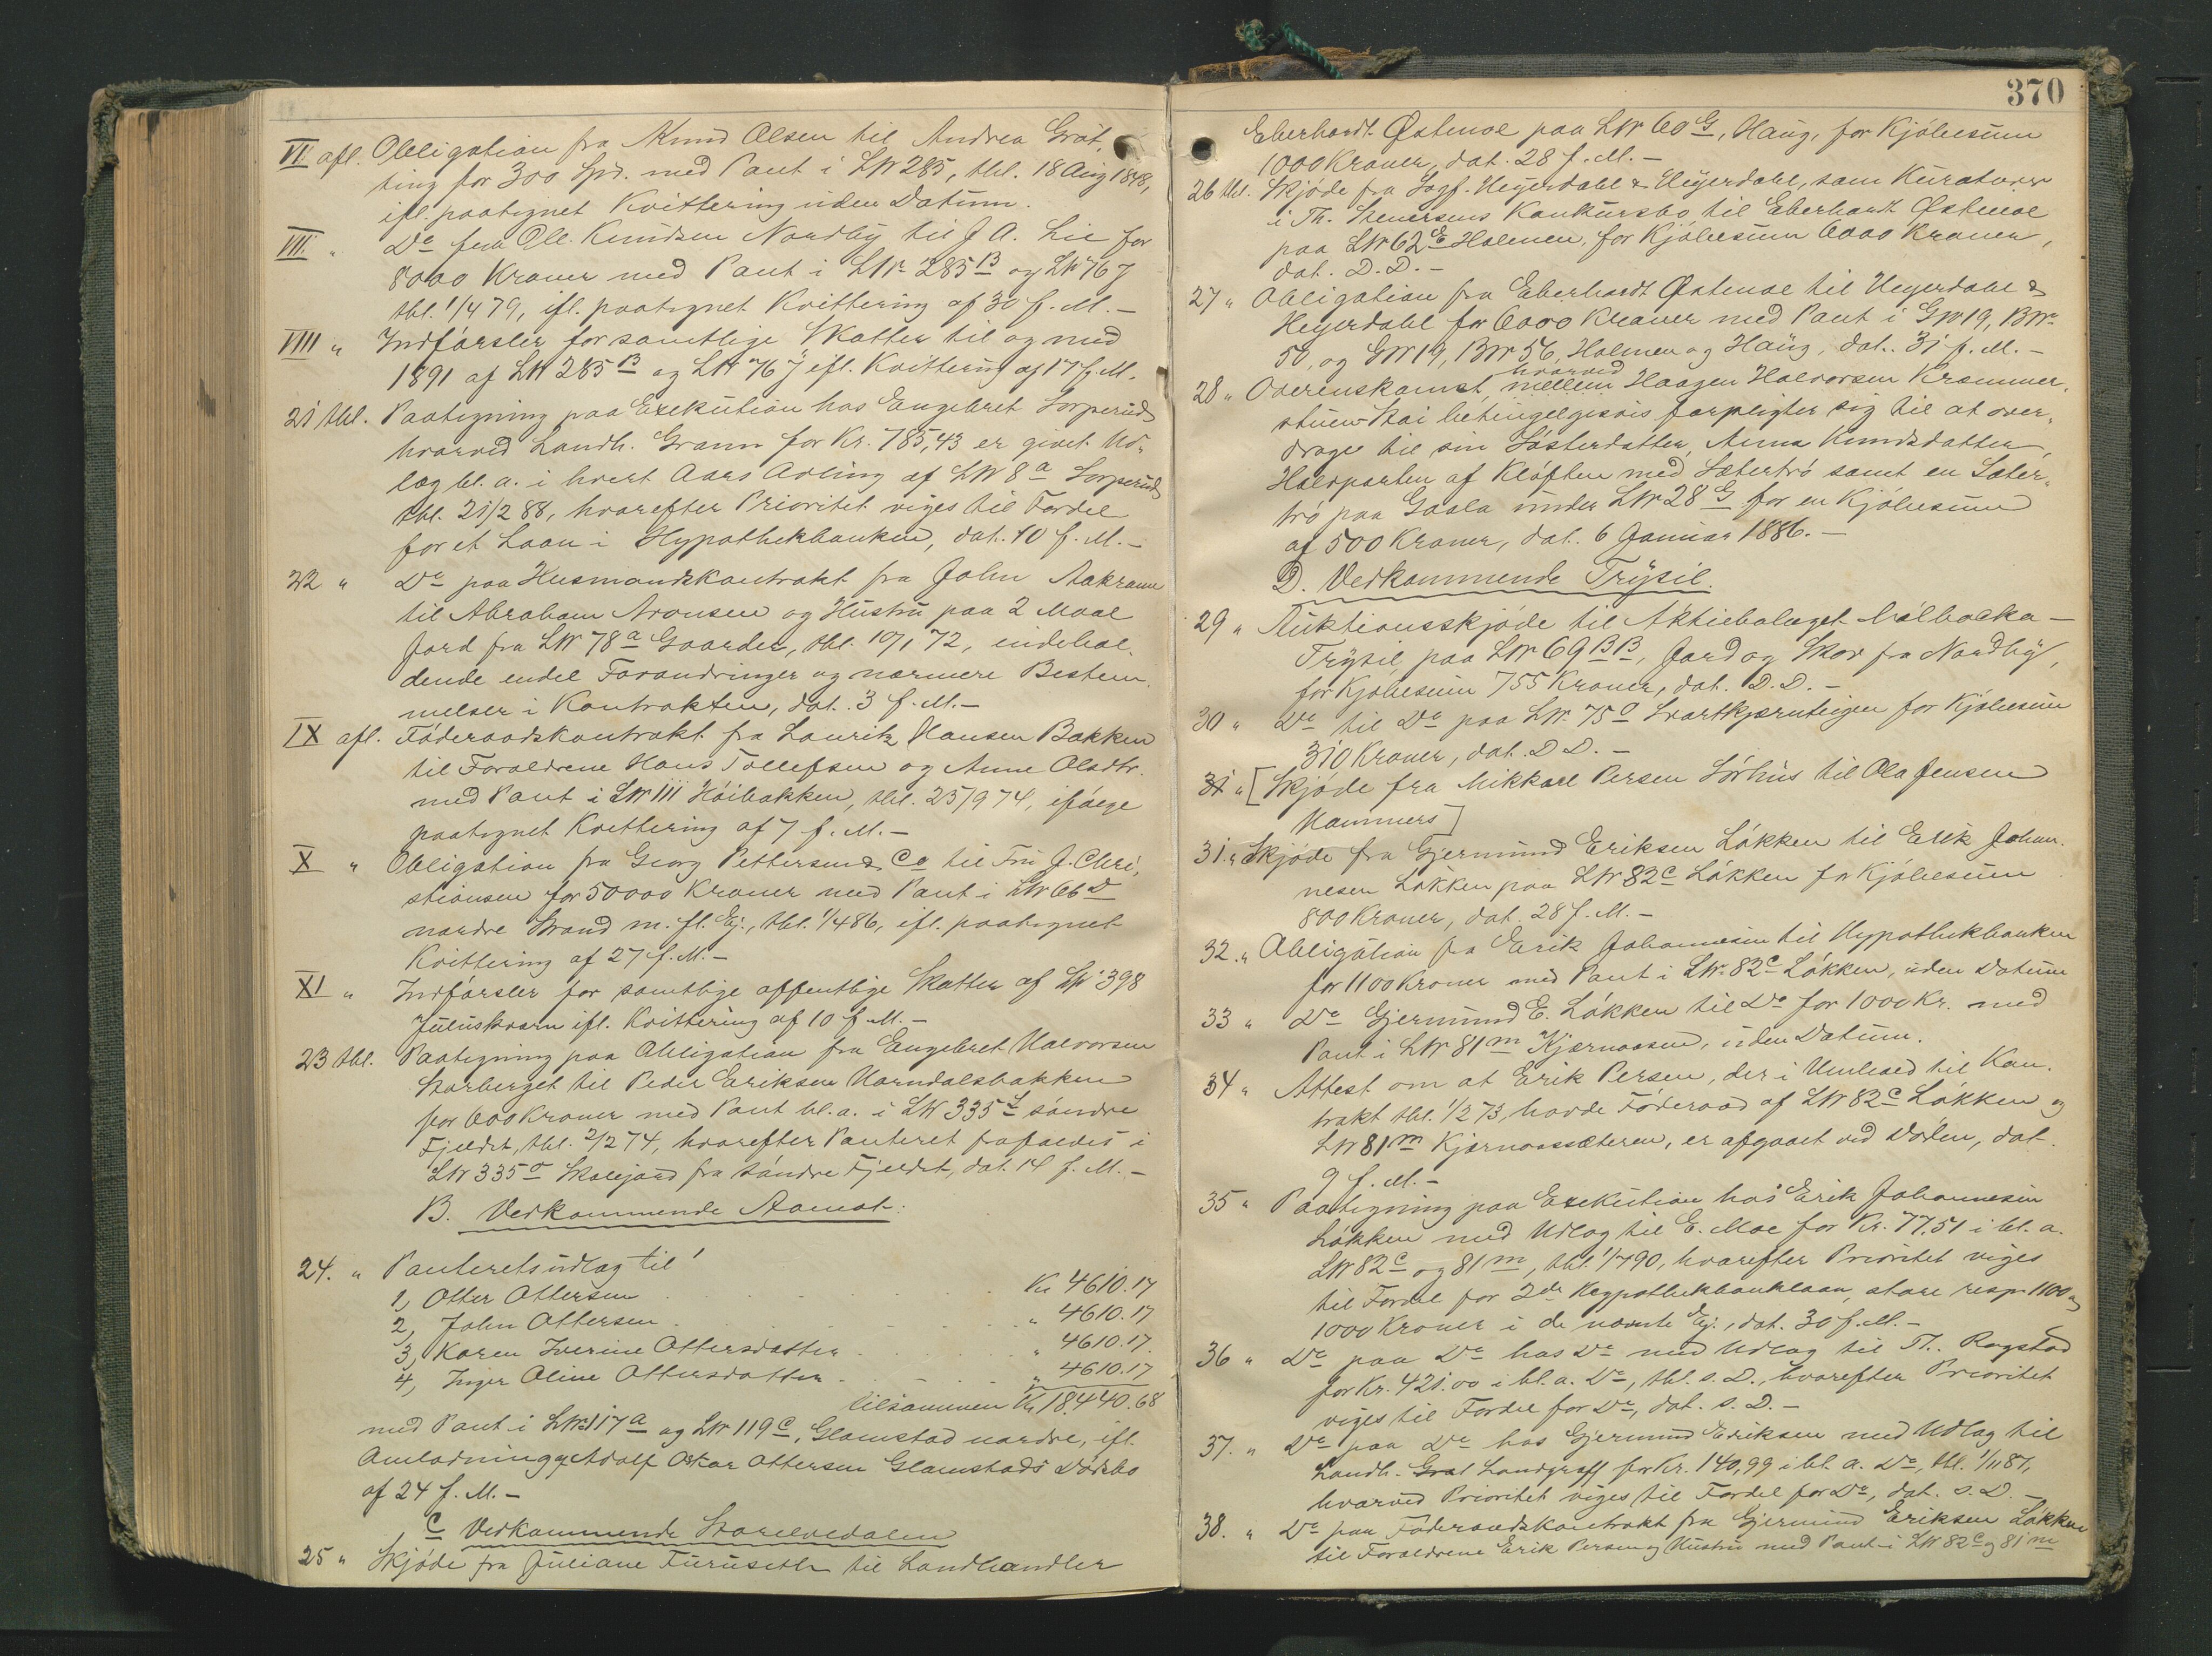 VI afl. Obligation fra Knud Olsen til Andrea Grøt,
ting for 300 Spd. med Pant i LN 285, tbl. 18 Aug 1848,
ifl. paategnet Kvittering uden Datum.
VII. " Do fra Ole Knudsen Nordby til J A. Lie for
8000 Kroner med Pant i LNr. 285 B og LN 76 j
tbl. 1/4 79, ifl. paategnet Kvittering af 30 f. M. –
VIII " Indførsler for samtlige Skatter til og med
1891 af LN 285 B og LN 76 j ifl. Kvittering af 17 f. M.
21 tbl. Paategning paa Exekution hos Engebret Sorperud
hvorved Landh. Gramm for Kr. 785,43 er givet Ud-
læg bl. a. i hvert Aars Avling af LN 8 a Sorperud
tbl. 21/2 88, hvorefter Prioritet viges til Fordel
for et Laan i Hypothekbanken, dat. 10 f. M. –
22 " Do paa Husmandskontrakt fra John Aakrann
til Abraham Aronsen og Hustru paa 2 Maal
Jord fra LN 78 a Gaarder, tbl. 10/1 72, indehol-
dende endel Forandringer og nærmere Bestem-
melser i Kontrakten, dat. 3 f. M. –
IX afl. Føderaadskontrakt fra Lauritz Hansen Bakken
til Forældrene Hans Tollefsen og Anne Olsdtr.
med Pant i LN 111 Høibakken, tbl. 25/9 74, ifølge
paategnet Kvittering af 7 f. M. –
X " Obligation fra Georg Pettersen & Co til Fru J. Chri-
stiansen for 50000 Kroner med Pant i LN 66 D
nordre Strand m. fl. Ej., tbl. 1/4 86, ifl. paategnet
Kvittering af 27 f. M. –
XI " Indførsler for samtlige offentlige Skatter af LN 398
Juluskvern ifl. Kvittering af 10 f. M. –
23 tbl. Paategning paa Obligation fra Engebret Halvorsen
Storberget til Peder Eriksen Harndalsbakken
for 600 Kroner med Pant bl. a. i LN 335 L søndre
Fjeldet, tbl. 2/2 74, hvorefter Panteret frafaldes i
LN 335 o Skolejord fra søndre Fjeldet, dat. 14 f. M. –
B. Vedkommende Aamot:
24. " Panteretsudlæg til
1, Otter Ottersen . . . Kr 4610.17
2, John Ottersen . . . " 4610.17
3, Karen Iverine Ottersdatter . . . " 4610.17.
4, Inger Oline Ottersdatter . . . " 4610.17
tilsammen Kr 18,440.68
med Pant i LNr. 117 a og LN 119 c, Glomstad nordre, ifl.
Omlodning af Adolf Oskar Ottersen Glomstads Dødsbo
af 24 f. M. –
C Vedkommende Storelvedalen
25 " Skjøde fra Juliane Furuseth til Landhandler
370
Eberhardt Østmoe paa LN 60 G, Haug, for Kjøbesum
1000 Kroner, dat. 28 f. M. –
26 tbl. Skjøde fra Sagf. Heyerdahl & Heyerdahl, som Kuratorer
i Th. Stenersens Konkursbo, til Eberhardt Østmoe
paa LN 62 E Holmen, for Kjøbesum 6000 Kroner,
dat. D. D. –
27 " Obligation fra Eberhardt Østmoe til Heyerdahl &
Heyerdahl for 6000 Kroner med Pant i GN 19, BNr.
50, og GN 19, BN 56, Holmen og Haug, dat. 31 f. M. –
28 " Overenskomst, hvorved mellem Haagen Halvorsen Kræmmer-
stuen Stai betingelsesvis forpligter sig til at over-
drage til sin Søsterdatter Anna Knudsdatter,
Halvparten af Kløften med Sætertrø samt en Sæter-
trø paa Gaala under LN 28 G for en Kjøbesum
af 500 Kroner, dat. 6 Januar 1886. –
D. Vedkommende Trysil.
29 " Auktionsskjøde til Aktiebolaget Mölbacka –
Trysil, paa LN 69 BB, Jord og Skov fra Nordby,
for Kjøbesum 755 Kroner, dat. D. D. –
30 " Do til Do paa LN. 75 o Svartkjærnteigen for Kjøbesum
310 Kroner, dat. D D. –
31 " [Skjøde fra Mikkael Persen Sørhus til Ola Jensen
Hammers]
31 " Skjøde fra Gjermund Eriksen Løkken til Erik Johan-
nesen Løkken paa LN 82 c Løkken for Kjøbesum
800 Kroner, dat. 28 f. M. –
32. " Obligation fra Erik Johannesen til Hypothekbanken
for 1100 Kroner med Pant i LN. 82 c Løkken, uden Datum
33 " Do Gjermund E. Løkken til Do for 1000 Kr. med
Pant i LN 81 m Kjærnaasen, uden Datum.
34 " Attest om at Erik Persen, der i Henhold til Kon-
trakt tbl. 1/2 73, havde Føderaad af LN 82 c Løkken og
LN 81 m Kjærnaassæteren, er afgaaet ved Døden, dat.
9 f. M. –
35 " Paategning paa Exekution hos Erik Johannesen
Løkken med Udlæg til E. Moe for Kr. 77.51 i bl. a.
LN 82 c og 81 m, tbl. 1/7 90, hvorefter Prioritet viges
til Fordel for 2de Hypothekbanklaan, store resp. 1100 og
1000 Kroner i de nævnte Ej., dat. 30 f. M. –
36 " Do paa Do hos Do med Udlæg til Th. Rogstad
for Kr. 421.00 i bl. a. Do, tbl. s. D., hvorefter Prioritet
viges til Fordel for Do, dat. s. D. –
37. " Do paa Do hos Gjermund Eriksen med Udlæg til
Landh. Landgraff for Kr. 140,99 i bl. a. Do, tbl. 1/11 87,
hvorved Prioritet viges til Fordel for Do, dat. s. D. –
38. " Do paa Føderaadskontrakt fra Gjermund Eriksen Løkken
til Forældrene Erik Persen og Hustru med Pant i LN 82 c og 81 m